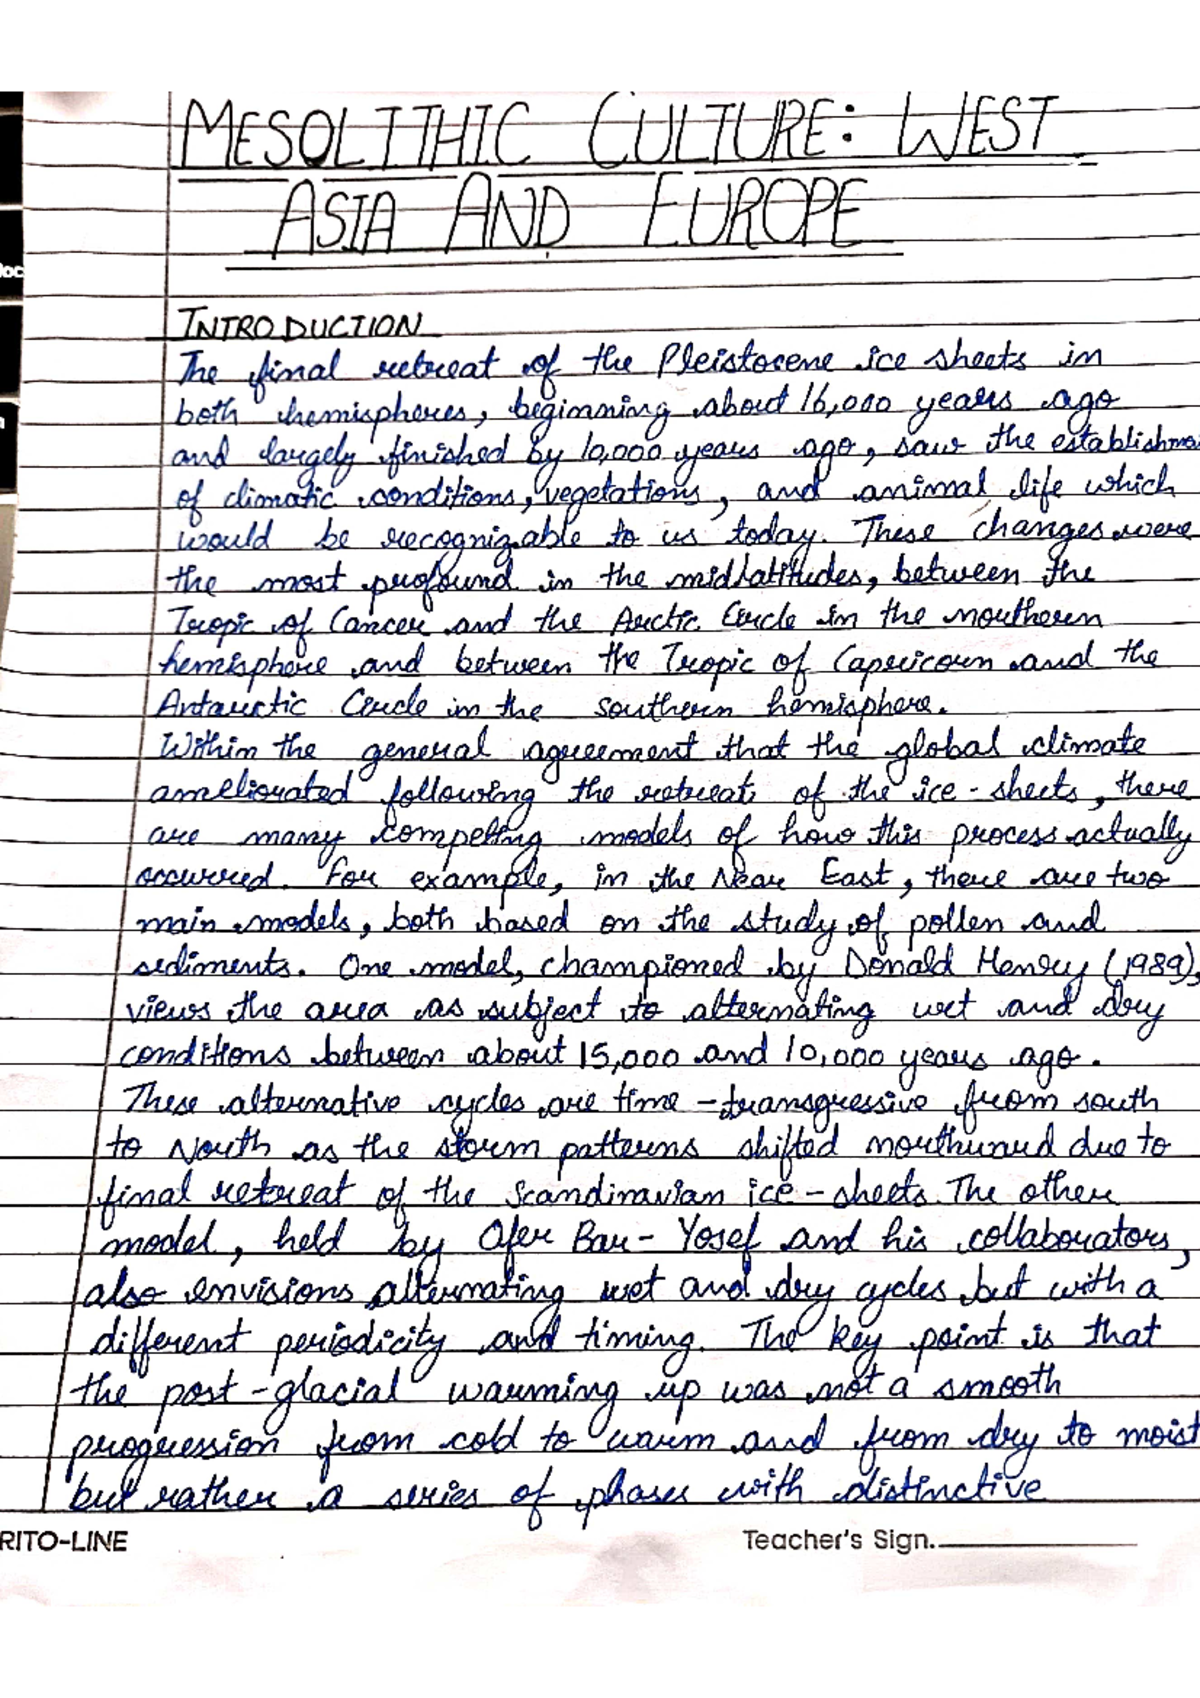 MESOLITHIC CULTURE: WEST
ASIA AND EUROPE
INTRODUCTION
The final retreat of the Pleistocene ice sheets in
both hemispheres, beginning about 16,000 years ago
and largely finished by 10,000 years ago, saw the establishme
of climatic conditions, vegetations, and animal life which
would be recognizable to us today. These changes were
the most profound in the midlatitudes, between the
Tropic of Cancer and the Arctic Circle in the northern
hemisphere and between the Tropic of Capricorn and the
Antarctic Circle in the southern hemisphere.
Within the general agreement that the global climate
ameliorated following the retreat of the ice-sheets, there
are many competing models of how this process actually
occurred. For example, in the Near East, there are two
main models, both based on the study of pollen and
sediments. One model, championed by Donald Henry (1989),
views the area as subject to alternating wet and dry
conditions between about 15,000 and 10,000 years ago.
These alternative cycles are time-transgressive from south
to North as the storm patterns shifted northward due to
final retreat of the Scandinavian ice-sheets. The other
model, held by Ofer Bar-Yosef and his collaborators,
also envisions alternating wet and dry cycles but with a
different periodicity and timing. The key point is that
the post-glacial warming up was not a smooth
progression from cold to warm and from dry to moist
but rather a series of phases with distinctive
RITO-LINE
Teacher's Sign.